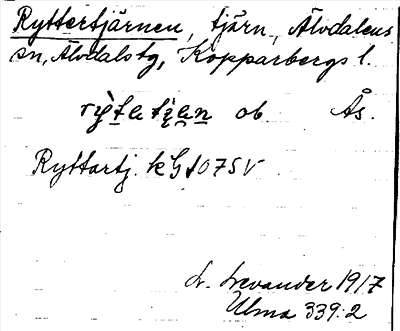 Ryttertjärnen, tjärn, Älvdalens
sn, Älvdalstg, Kopparbergs l.
ob. Ås.
Ryttartj. kG1075V
L. Levander 1917
Ulma 339:2